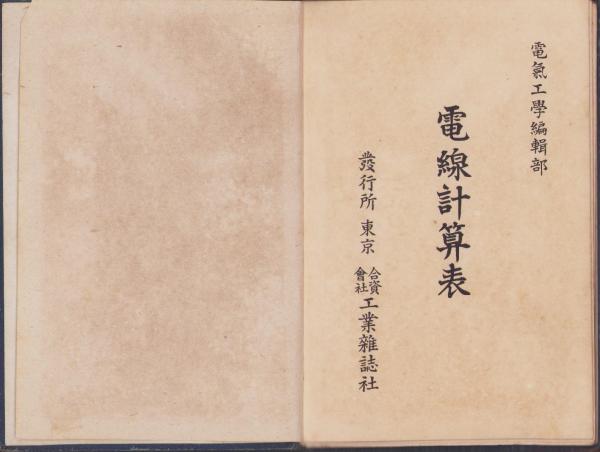 電氣工學編輯部
電線計算表
發行所 東京 合資會社工業雜誌社